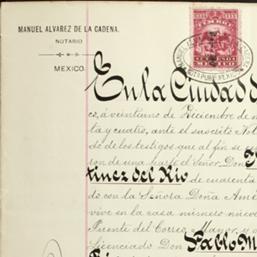 MANUEL ALVAREZ DE LA CADENA.
NOTARIO
MEXICO.
En la Ciudad d
co, a veintauno de Diciembre de m
ta y cuatro, ante el suscrito Nota
do de los testigos que al fin se
ron de una parte el Señor Don
tinez del Rio de cuarenta
do con la Señora Doña Amé
vive en la casa número nueve
Puente del Correo Mayor, y a
licenciado Don Pablo M